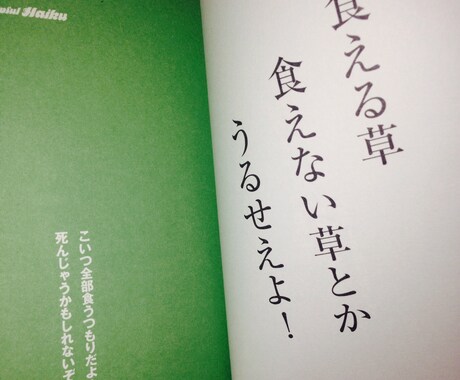 食える草
食えない草とか
うるせえよ！
Haiku
こいつ全部食うつもりだよ
死んじゃうかもしれないぞ